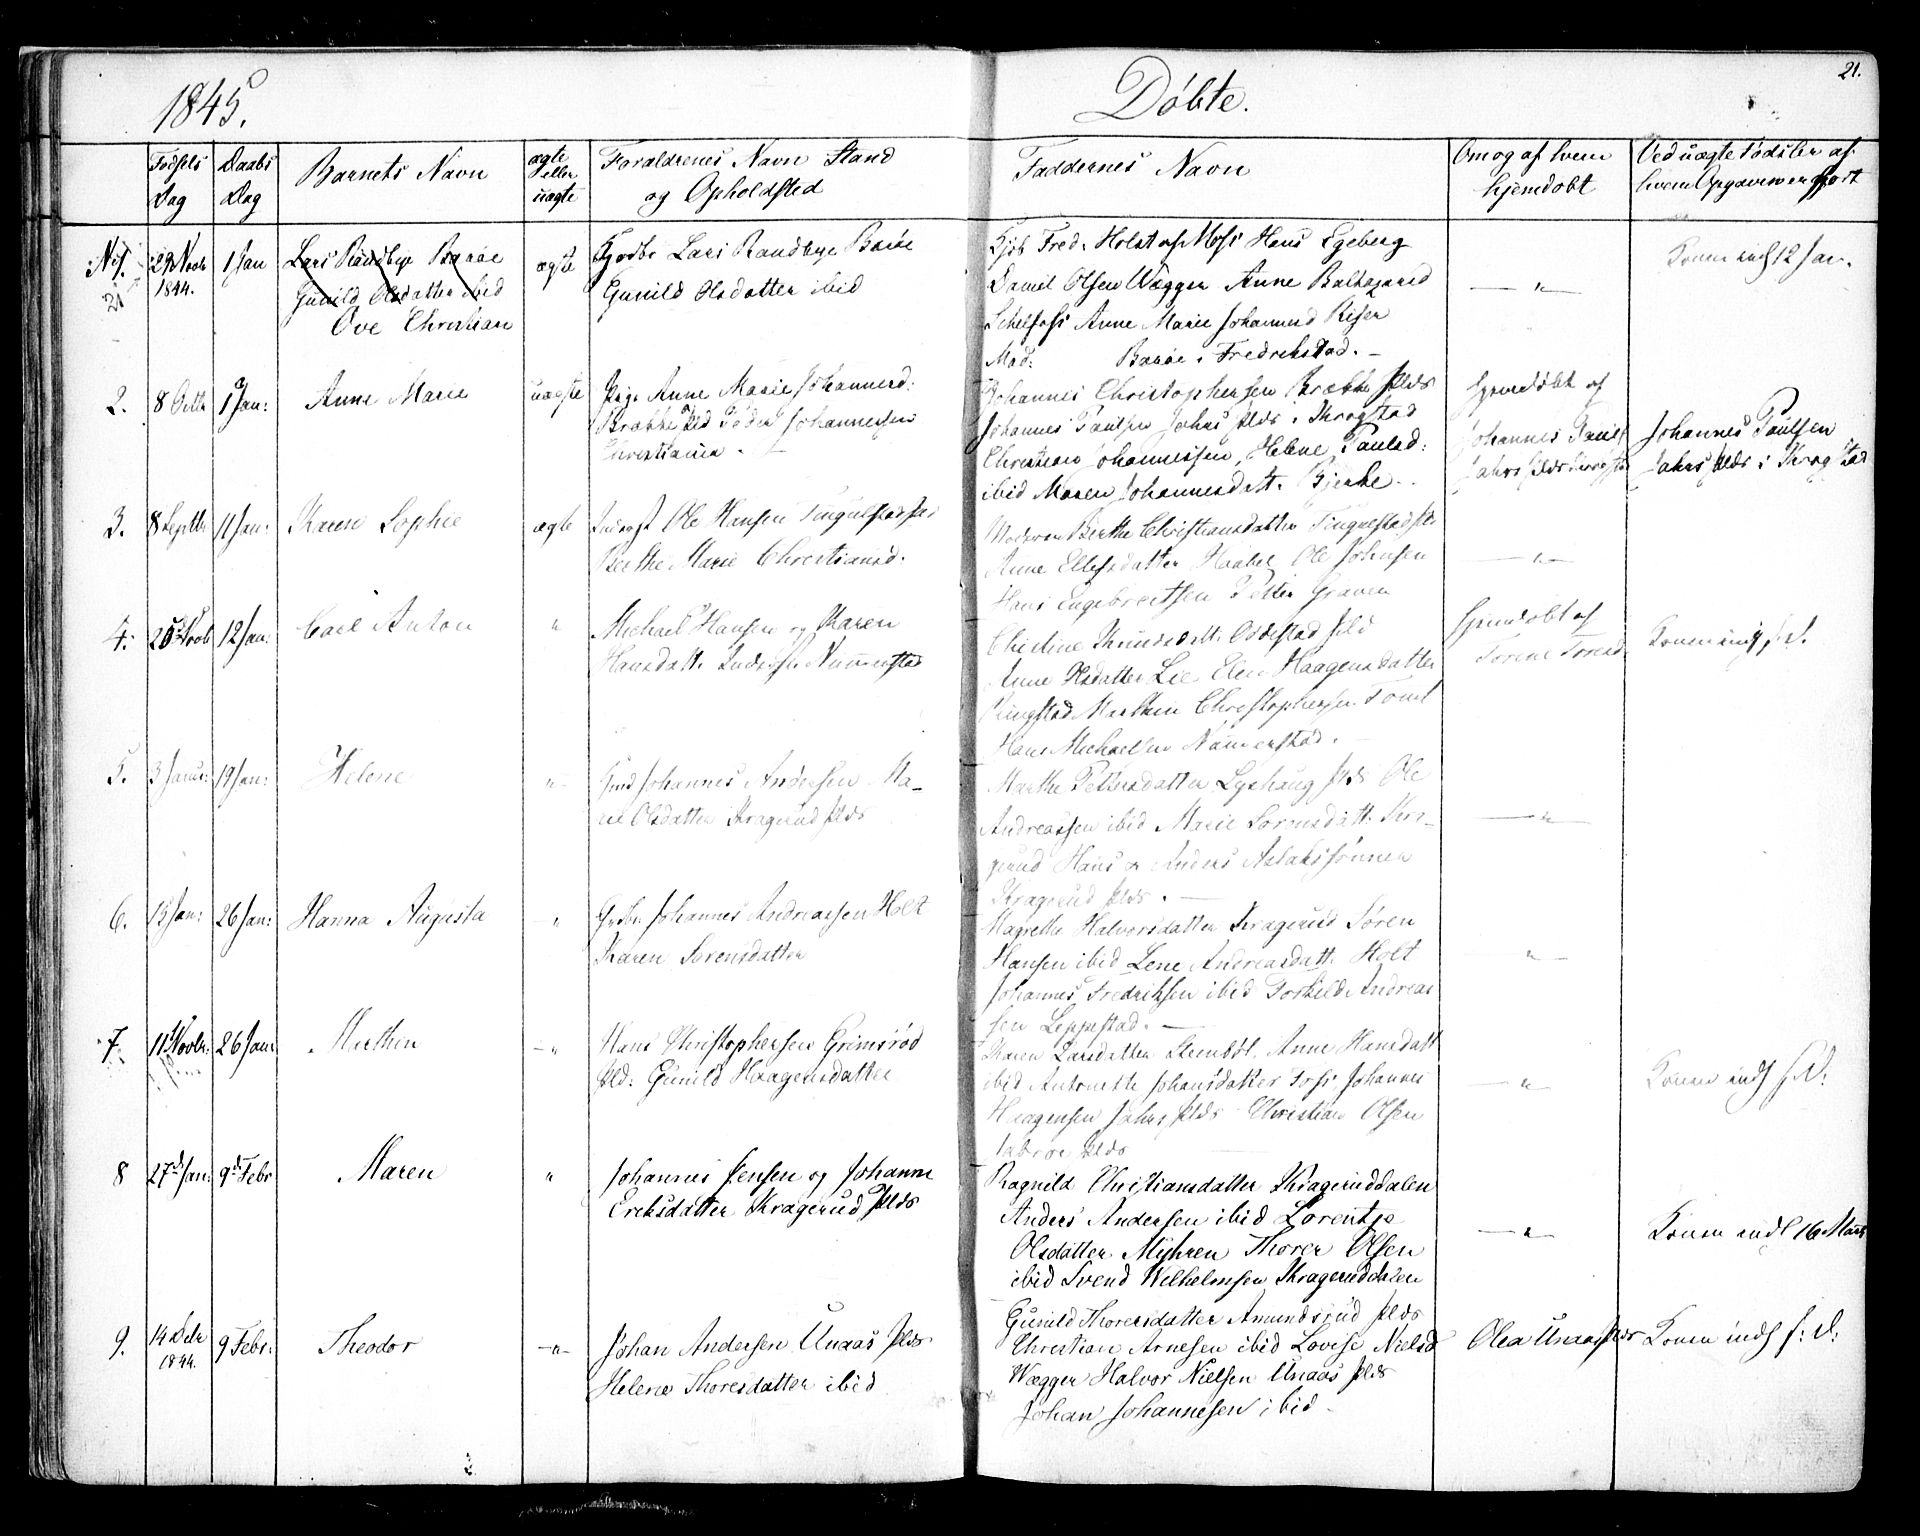 1845.
Døbte.
21.
Fødsels Dag
Daabs Dag
Barnets Navn
ægte eller uægte
Forældrenes Navn Stand
og Opholdsted
Faddernes Navn
Om og af hvem
hjemdøbt
Ved uægte Fødsler af
hvem Opgaven er gjort
29 Novb 1844.
1 Jan
Lars Randbye Barøe
Gunild Olsdatter ibid
Ove Christian
ægte
Lars Randbye Barøe
Gunild Olsdatter ibid
Fred. Holst af Moss Hans Egeberg
Daniel Olsen Wægger Anne
Anne Marie Johannesd
Mad: Barøe i Fredrikstad. —
— " —
Konen indl 12 Jan.
2.
8 Octb
1 Jan:
Anne Marie
uægte
Pige Anne Marie Johannesd:
Brække Johannessen
Christiania. —
Johannes Christophersen Brække Plds
Johannes Paulsen Johas Plds i Skrogstad
Christian Johannessen, Helene Paulsd:
ibid Maren Johannesdatt. Bjerke.
hjemdøbt af
Johannes Paulsen
Johannes Paulsen
Plds i Skrogstad
3.
8 Septbr
11 Jan:
Karen Sophie
ægte
Inderst Ole Hansen Tingulstad
Berthe Marie Christiansd.
Moderen Berthe Christiansdatter Tingulstad
Anne Ellefsdatter Ole Johnsen
Hans Engebretsen Petter Graven
— " —
4.
12 Jan:
Carl Anton
"
Michael Hansen og Karen
Hansdatt. Inderst Nummestad
Christine Oddestad
Anne Olsdatter Lie Elen Haagensdatter
Ringstad Christophersen
Hans Michaelsen Nummestad.
hjemdøbt af
Konen indl s. d.
5.
3 Januar:
19 Jan:
Helene
"
Johannes Andersen Ma-
ri Olsdatter Kragerud Plds
Marthe Pettersdatter Lyshaug Plds Ole
Andreassen ibid Marie Sørensdatt. Kra-
gerud Hans og Anders Aslakssønner
Kragerud Plds. —
— " —
6.
13 Jan:
26 Jan:
Hanna Augusta
"
Grdbr. Johannes Andreassen Holt
Karen Sørensdatter
Magrethe Halvorsdatter Kragerud Søren
Hansen ibid Lene Andreasdatt. Holt
Johannes Fredriksen ibid Torkild Andreas
sen Leppestad. —
— " —
7.
11 Novbr:
26 Jan:
Mathea
— "
Hans Christophersen Grimsrød
Pld: Gunild Haagensdatter
Karen Larsdatter Stenbøl, Anne Hansdatt
ibid Antonette Johansdatter Foss, Johannes
Haagensen Plds Christian Olsen
Plds
— " —
Konen indl s. d.
8
27d Jan:
9d Febr
Maren
"
Johannes Jensen og Johanne
Eriksdatter Kragerud Plds
Ragnild Christiansdatter Krageruddalen
Anders Andersen ibid Lorentze
Olsdatter Myhren Thorer Olsen
ibid Svend Wilhelmsen Krageruddalen
— " —
Konen indl 16 Marts
9.
14 Decbr 1844.
9 Febr:
Theodor
— " —
Johan Andersen Unaas Plds
Helene Thoresdatter ibid
Gunild Thoresdatter Amundsrud Plds
Christian Arnesen ibid Lovise Nielsd
Wægger Halvor Nielsen Unaas Plds
Johan Johannesen ibid —
Olea Unaas Plds
Konen indl s: d: